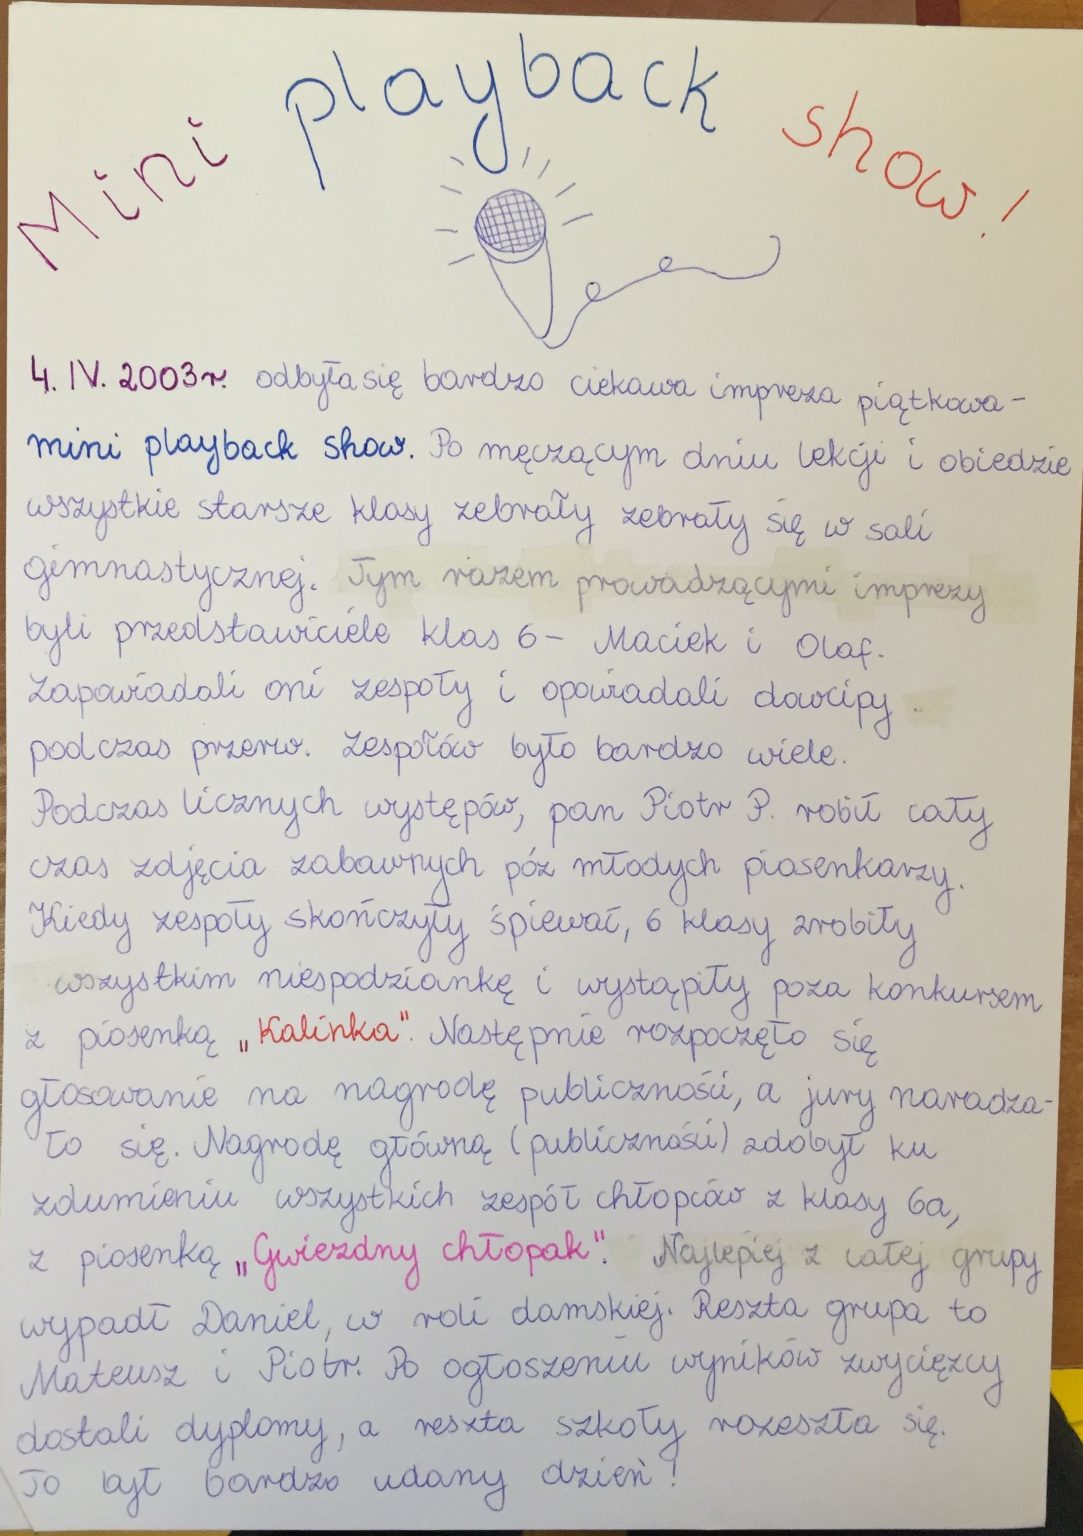 Mini playback show!
4. IV. 2003r. odbyła się bardzo ciekawa impreza piątkowa -
mini playback show. Po męczącym dniu lekcji i obiedzie
wszystkie starsze klasy zebrały zebrały się w sali
gimnastycznej. Tym razem prowadzącymi imprezy
byli przedstawiciele klas 6 - Maciek i Olaf.
Zapawiadali oni zespoły i opowiadali dowcipy
podczas przerw. Zespołów było bardzo wiele.
Podczas licznych występów, pan Piotr P. robił cały
czas zdjęcia zabawnych póz młodych piosenkarzy.
Kiedy zespoły skończyły śpiewać, 6 klasy zrobiły
wszystkim niespodziankę i wystąpiły poza konkursem
z piosenką „Kalinka". Następnie rozpoczęło się
głosowanie na nagrodę publiczności, a jury naradza-
ło się. Nagrodę główną (publiczności) zdobył ku
zdumieniu wszystkich zespół chłopców z klasy 6a,
z piosenką „Gwiezdny chłopak". Najlepiej z całej grupy
wypadł Daniel, w roli damskiej. Reszta grupa to
Mateusz i Piotr. Po ogłoszeniu wyników zwycięzcy
dostali dyplomy, a reszta szkoły rozeszła się.
To był bardzo udany dzień!